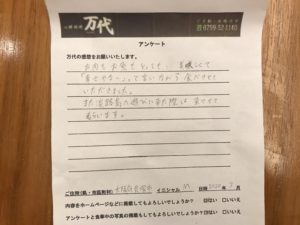 万代
0799-52-1140
アンケート
万代の感想をお願いいたします。
お肉もお魚もとっても、美味しくて
「幸せやな～」って言いながら食べさせて
いただきました。
また淡路島へ遊びに来た際は食べさせて
ご住所（県・市区町村） イニシャル M 日時 2020年 月
内容をホームページなどに掲載してもよろしいでしょうか？ はい いいえ
アンケートと食事中の写真の掲載もしてよろしいでしょうか？ はい いいえ